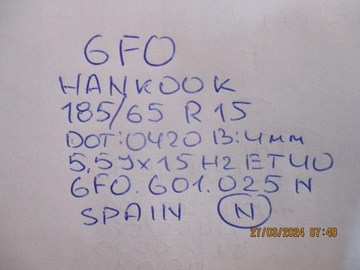 6FO
HANKOOK
185/65 R 15
DOT:0420 B:4мм
5,5Jx15 H2 ET40
6FO.601.025 N
SPAIN N
27/03/2024 07:49